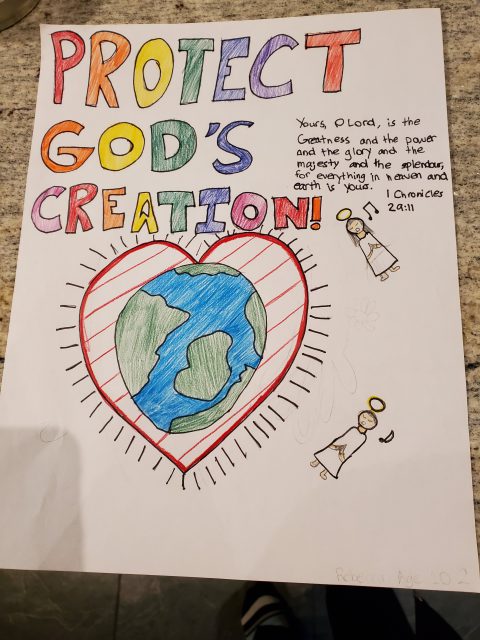 PROTECT
GOD'S
CREATION!
Yours, O Lord, is the
Greatness and the power
and the glory and the
majesty and the splendour,
for everything in heaven and
earth is yours.
1 Chronicles
29:11
Age 10